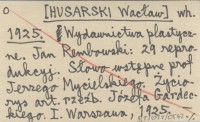 o [HUSARSKI Wacław] wh.
1925. Wydawnictwa plastycz-
ne. Jan Rembowski: 29 repro-
dukcyj. Słowo wstępne prof.
Jerzego Mycielskiego. Życio-
rys art. rzeźb. Józefa Gardec-
kiego. I. Warszawa, 1925.